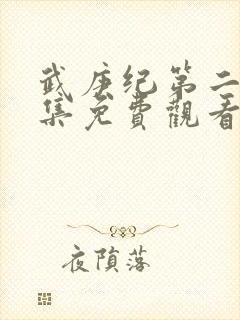 武庚纪第二
集免费觀看
夜隕落